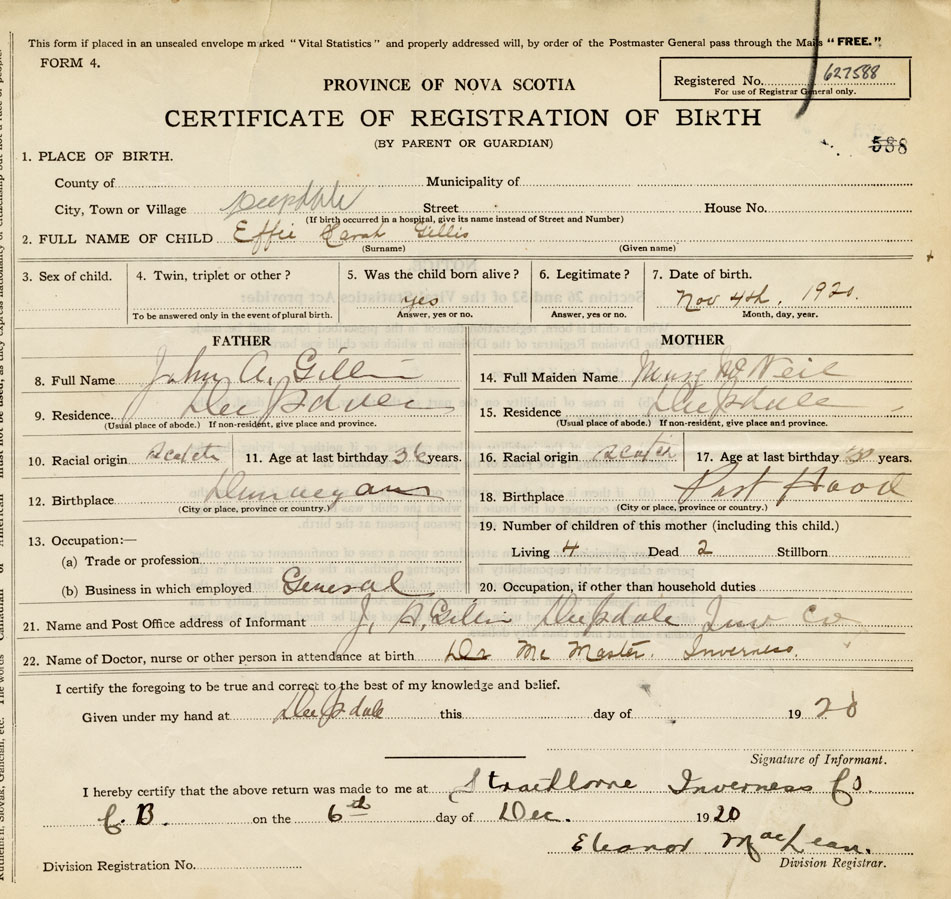 This form if placed in an unsealed envelope marked "Vital Statistics" and properly addressed will, by order of the Postmaster General pass through the Mails "FREE."
FORM 4.
Registered No. 627588
For use of Registrar General only.
PROVINCE OF NOVA SCOTIA
CERTIFICATE OF REGISTRATION OF BIRTH
(BY PARENT OR GUARDIAN)
588
1. PLACE OF BIRTH.
County of Municipality of
City, Town or Village Deepdale Street House No.
(If birth occurred in a hospital, give its name instead of Street and Number)
2. FULL NAME OF CHILD Effie Sarah Gillis
(Surname) (Given name)
3. Sex of child. 4. Twin, triplet or other? 5. Was the child born alive? 6. Legitimate? 7. Date of birth.
yes Nov 4th, 1920.
To be answered only in the event of plural birth. Answer, yes or no. Answer, yes or no. Month, day, year.
FATHER MOTHER
8. Full Name John A. Gillis 14. Full Maiden Name Mary McNeil
9. Residence. Deepdale 15. Residence Deepdale
(Usual place of abode.) If non-resident, give place and province. (Usual place of abode.) If non-resident, give place and province.
10. Racial origin Scotch 11. Age at last birthday 36 years. 16. Racial origin Scotch 17. Age at last birthday years.
12. Birthplace Dunvegan 18. Birthplace Port Hood
(City or place, province or country.) (City or place, province or country.)
13. Occupation:— 19. Number of children of this mother (including this child.)
(a) Trade or profession Living 4 Dead 2 Stillborn
(b) Business in which employed General 20. Occupation, if other than household duties
21. Name and Post Office address of Informant J. A. Gillis Deepdale Inv Co
22. Name of Doctor, nurse or other person in attendance at birth Dr Mc Master. Inverness.
I certify the foregoing to be true and correct to the best of my knowledge and belief.
Given under my hand at Deepdale this day of 1920
Signature of Informant.
I hereby certify that the above return was made to me at Strathlorne Inverness Co.
C. B. on the 6th day of Dec. 1920
Eleanor MacLean.
Division Registration No. Division Registrar.